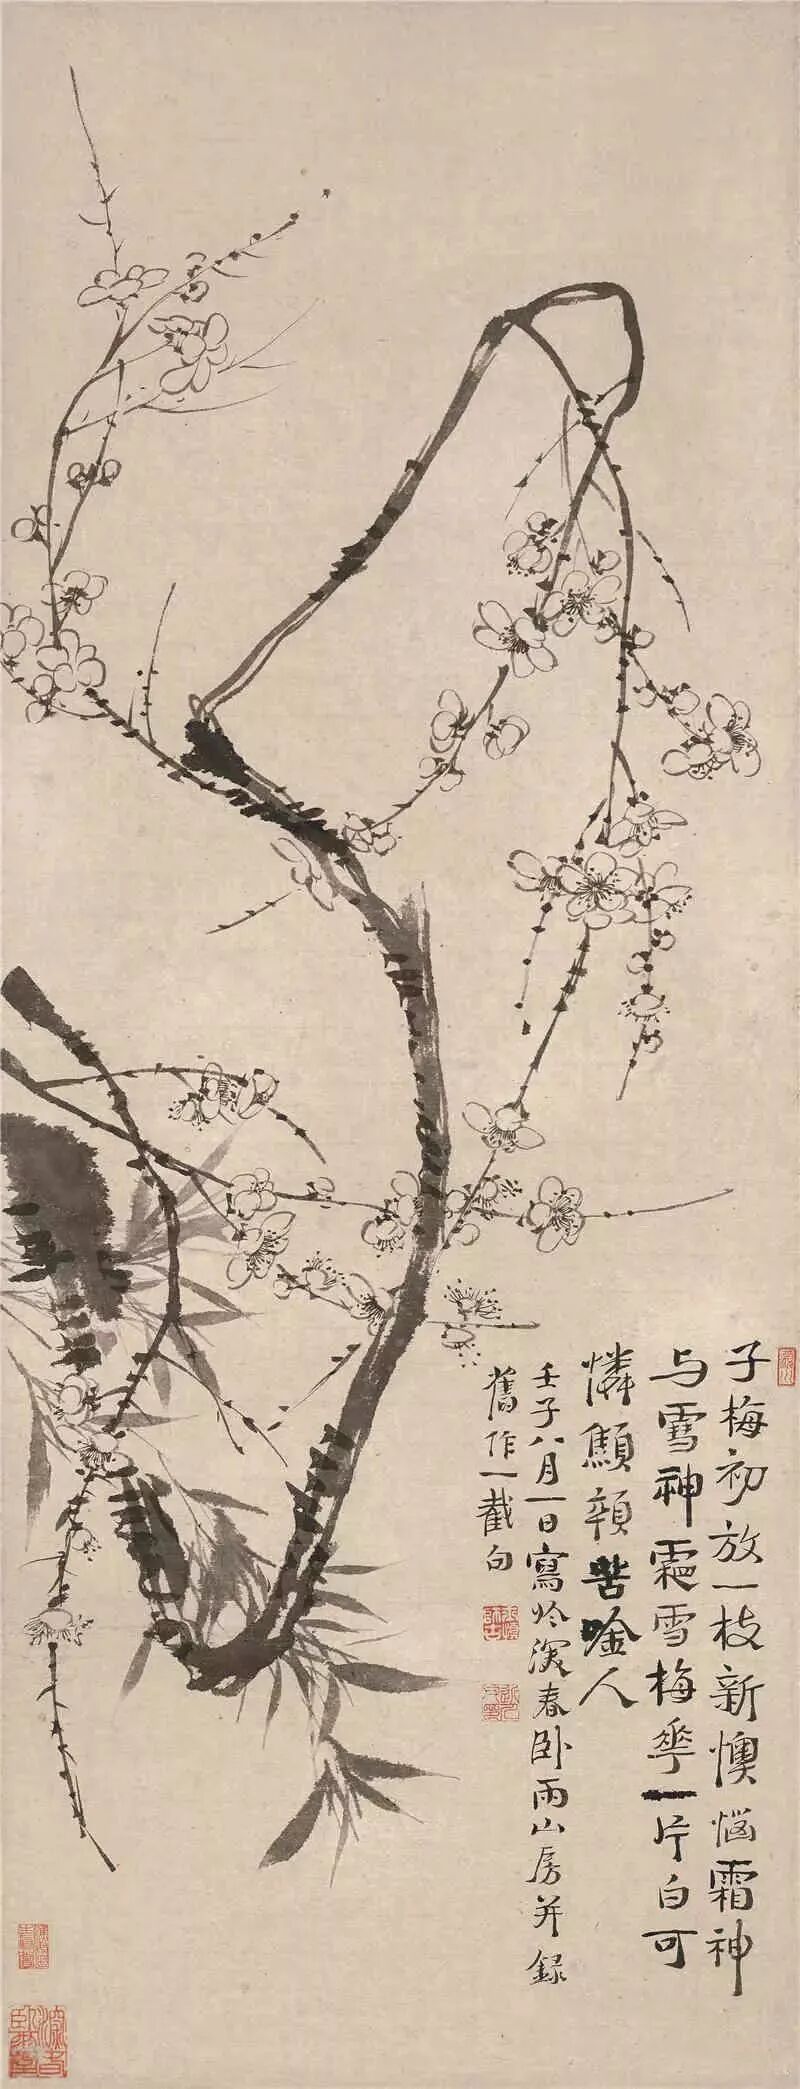 子梅初放一枝新懊惱霜神
与雪神霜雪梅華一片白可
憐顦顇苦唫人
壬子八月一日寫於深春卧雨山房并録
舊作一截句